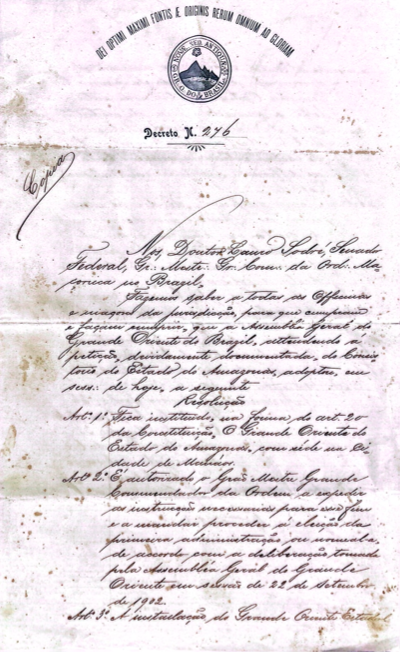 DEI OPTIMI MAXIMI FONTIS Æ ORIGINIS RERUM OMNIUM AD GLORIAM
NOVÆ SED ANTIQUÆ
GR. O. DO BRASIL
Decreto N. 276
Copia
Nós, Doutor Lauro Sodré, Senador
Federal, Gr∴ Mestre Gr∴ Com∴ da Ord∴ Ma-
çonica no Brazil,
Fazemos saber a todas as Officinas
e maçons da jurisdição, para que cumpram
e façam cumprir, que a Assembléa Geral do
Grande Oriente do Brazil, attendendo a
petição, devidamente documentada, do Consis-
torio do Estado do Amazonas, adoptou, em
sess∴ de hoje, a seguinte
Resolução
Art. 1º. Fica instituido, na forma do art. 20
da Constituição, O Grande Oriente do
Estado do Amazonas, com séde na Ci-
dade de Manáos.
Art. 2º. É autorizado o Grão Mestre Grande
Commendador da Ordem a expedir
as instrucções necessarias para esse fim
e a mandar proceder á eleição da
primeira administração ou nomeal-a
de accordo com a deliberação tomada
pela Assembléa Geral do Grande
Oriente em sessão de 22 de Setembro
de 1902.
Art. 3º. A installação do Grande Oriente Estadal